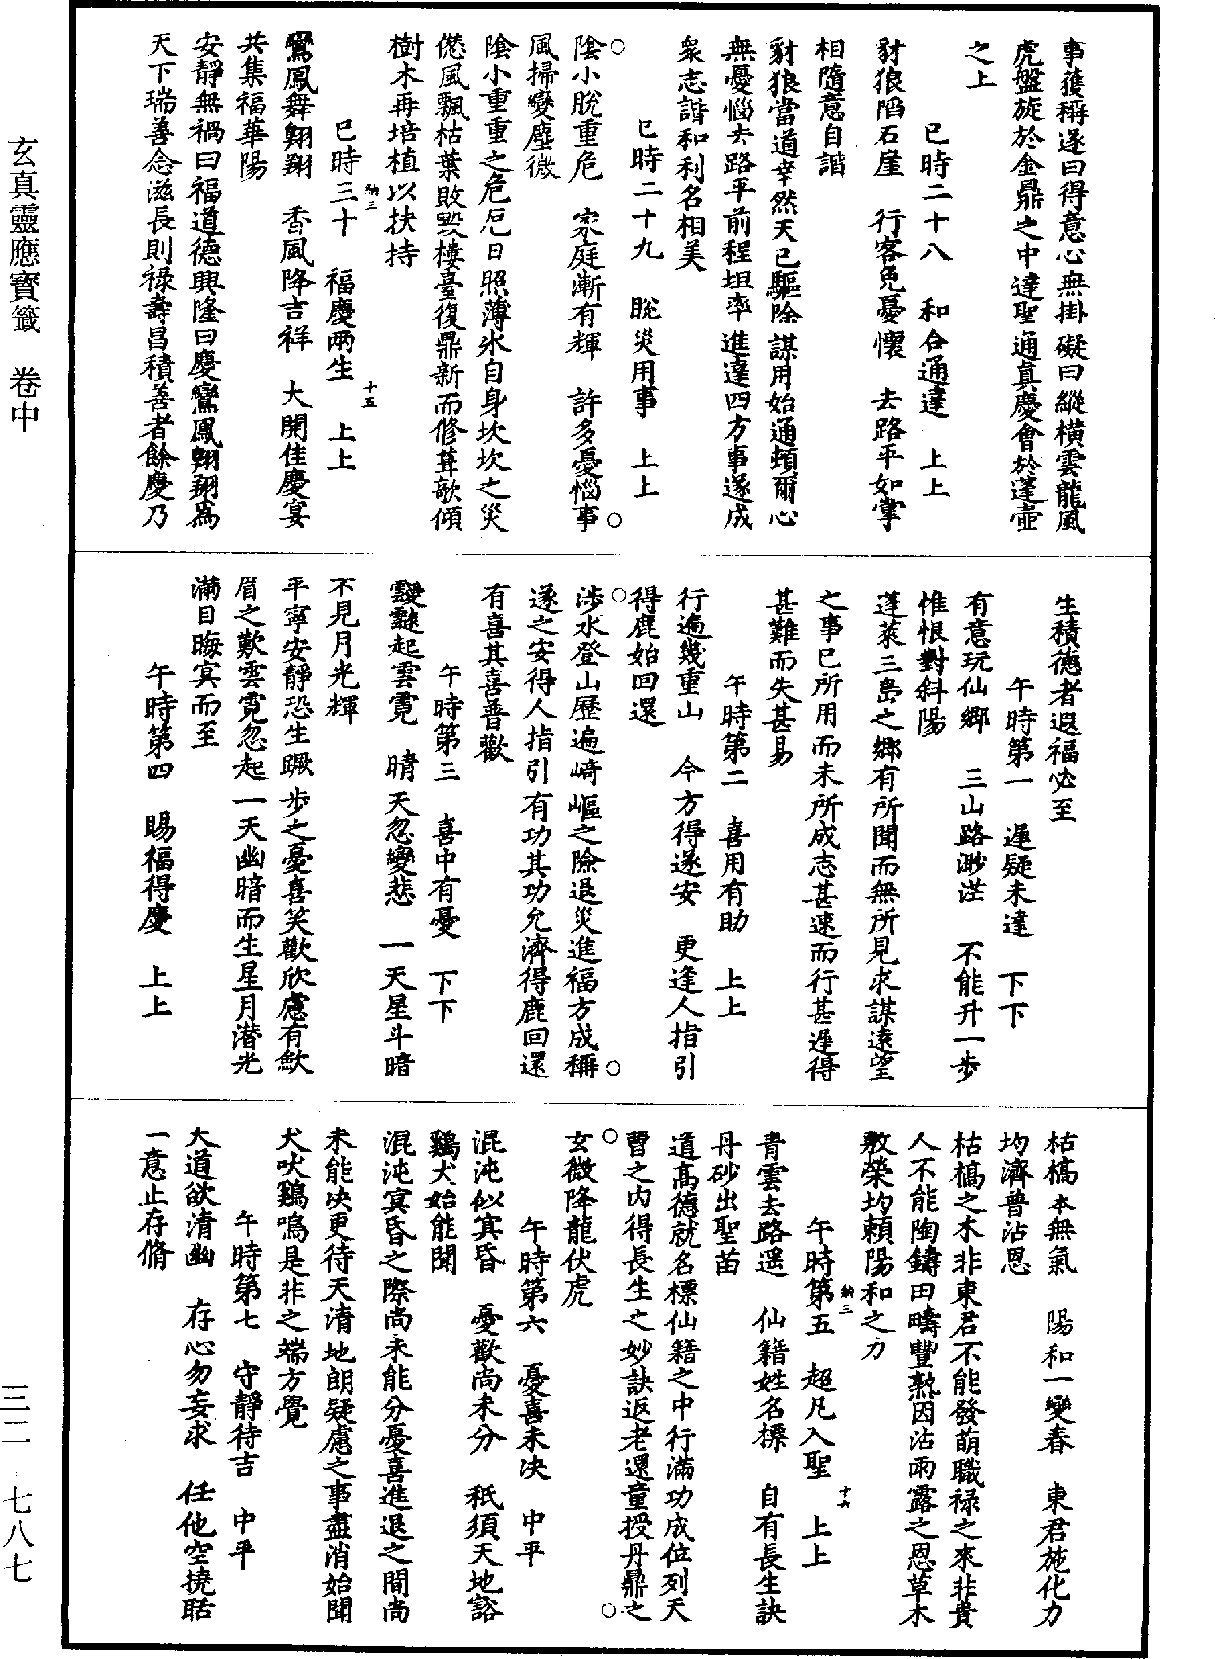 事獲稱遂曰得意心無掛礙曰縱橫雲龍風
虎盤旋於金鼎之中達聖通真慶會於蓬壺
之上
巳時二十八　和合通達　上上
豺狼陷石崖　行客免憂懷　去路平如掌
相隨意自諧
豺狼當道幸然天已驅除謀用始通頓爾心
無憂惱去路平前程坦率進達四方事遂成
衆志諧和利名相美
巳時二十九　脫災用事　上上
○陰小脫重危　家庭漸有輝　許多憂惱事○
風掃變塵微
陰小重重之危厄日照薄氷自身坎坎之災
僽風飄枯葉敗毀樓臺復鼎新而修葺欹傾
樹木再培植以扶持
納三　十五
巳時三十　福慶兩生　上上
鸞鳳舞翺翔　香風降吉祥　大開佳慶宴
共集福華陽
安靜無禍曰福道德興隆曰慶鸞鳳翺翔爲
天下瑞善念滋長則祿壽昌積善者餘慶乃
生積德者遐福必至
午時第一　遲疑未達　下下
有意玩仙鄉　三山路渺茫　不能升一步
惟恨對斜陽
蓬萊三島之鄉有所聞而無所見求謀遠望
之事已所用而未所成志甚速而行甚遲得
甚難而失甚易
午時第二　喜用有助　上上
行遍幾重山　今方得遂安　更逢人指引
得鹿始回還
○涉水登山歷遍崎嶇之險退災進福方成稱○
遂之安得人指引有功其功允濟得鹿回還
有喜其喜普歡
午時第三　喜中有憂　下下
靉靆起雲霓　晴天忽變悲　一天星斗暗
不見月光輝
平寧安靜恐生蹶步之憂喜笑歡欣慮有歛
眉之歎雲霓忽起一天幽暗而生星月潜光
滿目晦冥而至
午時第四　賜福得慶　上上
枯槁本無氣　陽和一變春　東君施化力
均濟普沾恩
枯槁之木非東君不能發萌職祿之來非貴
人不能陶鑄田疇豐熟因沾雨露之恩草木
敷榮均賴陽和之力
納三　十六
午時第五　超凡入聖　上上
青雲去路遥　仙籍姓名標　自有長生訣
丹砂出聖苗
道高德就名標仙籍之中行滿功成位列天
曹之内得長生之妙訣返老還童授丹鼎之
○玄微降龍伏虎○
午時第六　憂喜未决　中平
混沌似冥昏　憂歡尚未分　秖須天地豁
鷄犬始能聞
混沌冥昏之際尚未能分憂喜進退之間尚
未能决更待天清地朗疑慮之事盡消始聞
犬吠鷄鳴是非之端方覺
午時第七　守靜待吉　中平
大道欲清幽　存心勿妄求　任他空撓聒
一意止存脩
玄真靈應寶籤　卷中
三二　七八七